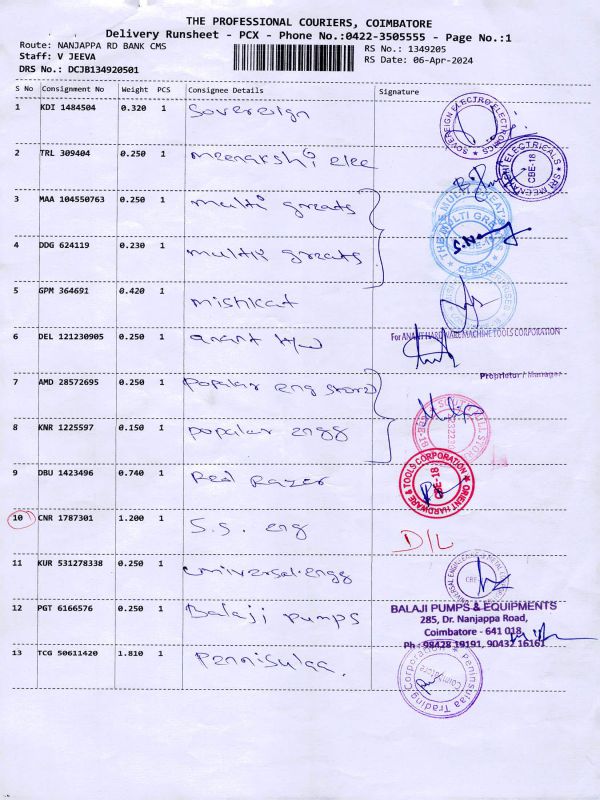 THE PROFESSIONAL COURIERS, COIMBATORE
Delivery Runsheet - PCX - Phone No.:0422-3505555 - Page No.:1
Route: NANJAPPA RD BANK CMS
RS No.: 1349205
Staff: V JEEVA
RS Date: 06-Apr-2024
DRS No.: DCJB134920501
S No Consignment No Weight PCS Consignee Details Signature
1 KDI 1484504 0.320 1 Sovereign
SOVEREIGN ELECTRO ELECTRONICS
2 TRL 309404 0.250 1 meenakshi elec
SRI MEENAKSHI ELECTRICALS CBE-18
3 MAA 104550763 0.250 1 multi greats
THE M/S MULTI GREATS CBE-18
4 DDG 624119 0.230 1 multi greats
5 GPM 364691 0.420 1 mishkat
6 DEL 121230905 0.250 1 anant H/w
For ANANT HARDWARE MACHINE TOOLS CORPORATION
Proprietor / Manager
7 AMD 28572695 0.250 1 popular eng stores
8 KNR 1225597 0.150 1 popular engg
9 DBU 1423496 0.740 1 Red Razer
ORIENT HARDWARE & TOOLS CORPORATION CBE-18
10 CNR 1787301 1.200 1 S.S. eng
D/L
11 KUR 531278338 0.250 1 universal.engg
12 PGT 6166576 0.250 1 Balaji pumps
BALAJI PUMPS & EQUIPMENTS
285, Dr. Nanjappa Road,
Coimbatore - 641 018.
Ph : 98428 19191, 90432 16161
13 TCG 50611420 1.810 1 Pennisulaa.
Peninsulaa Trading Corporation Coimbatore